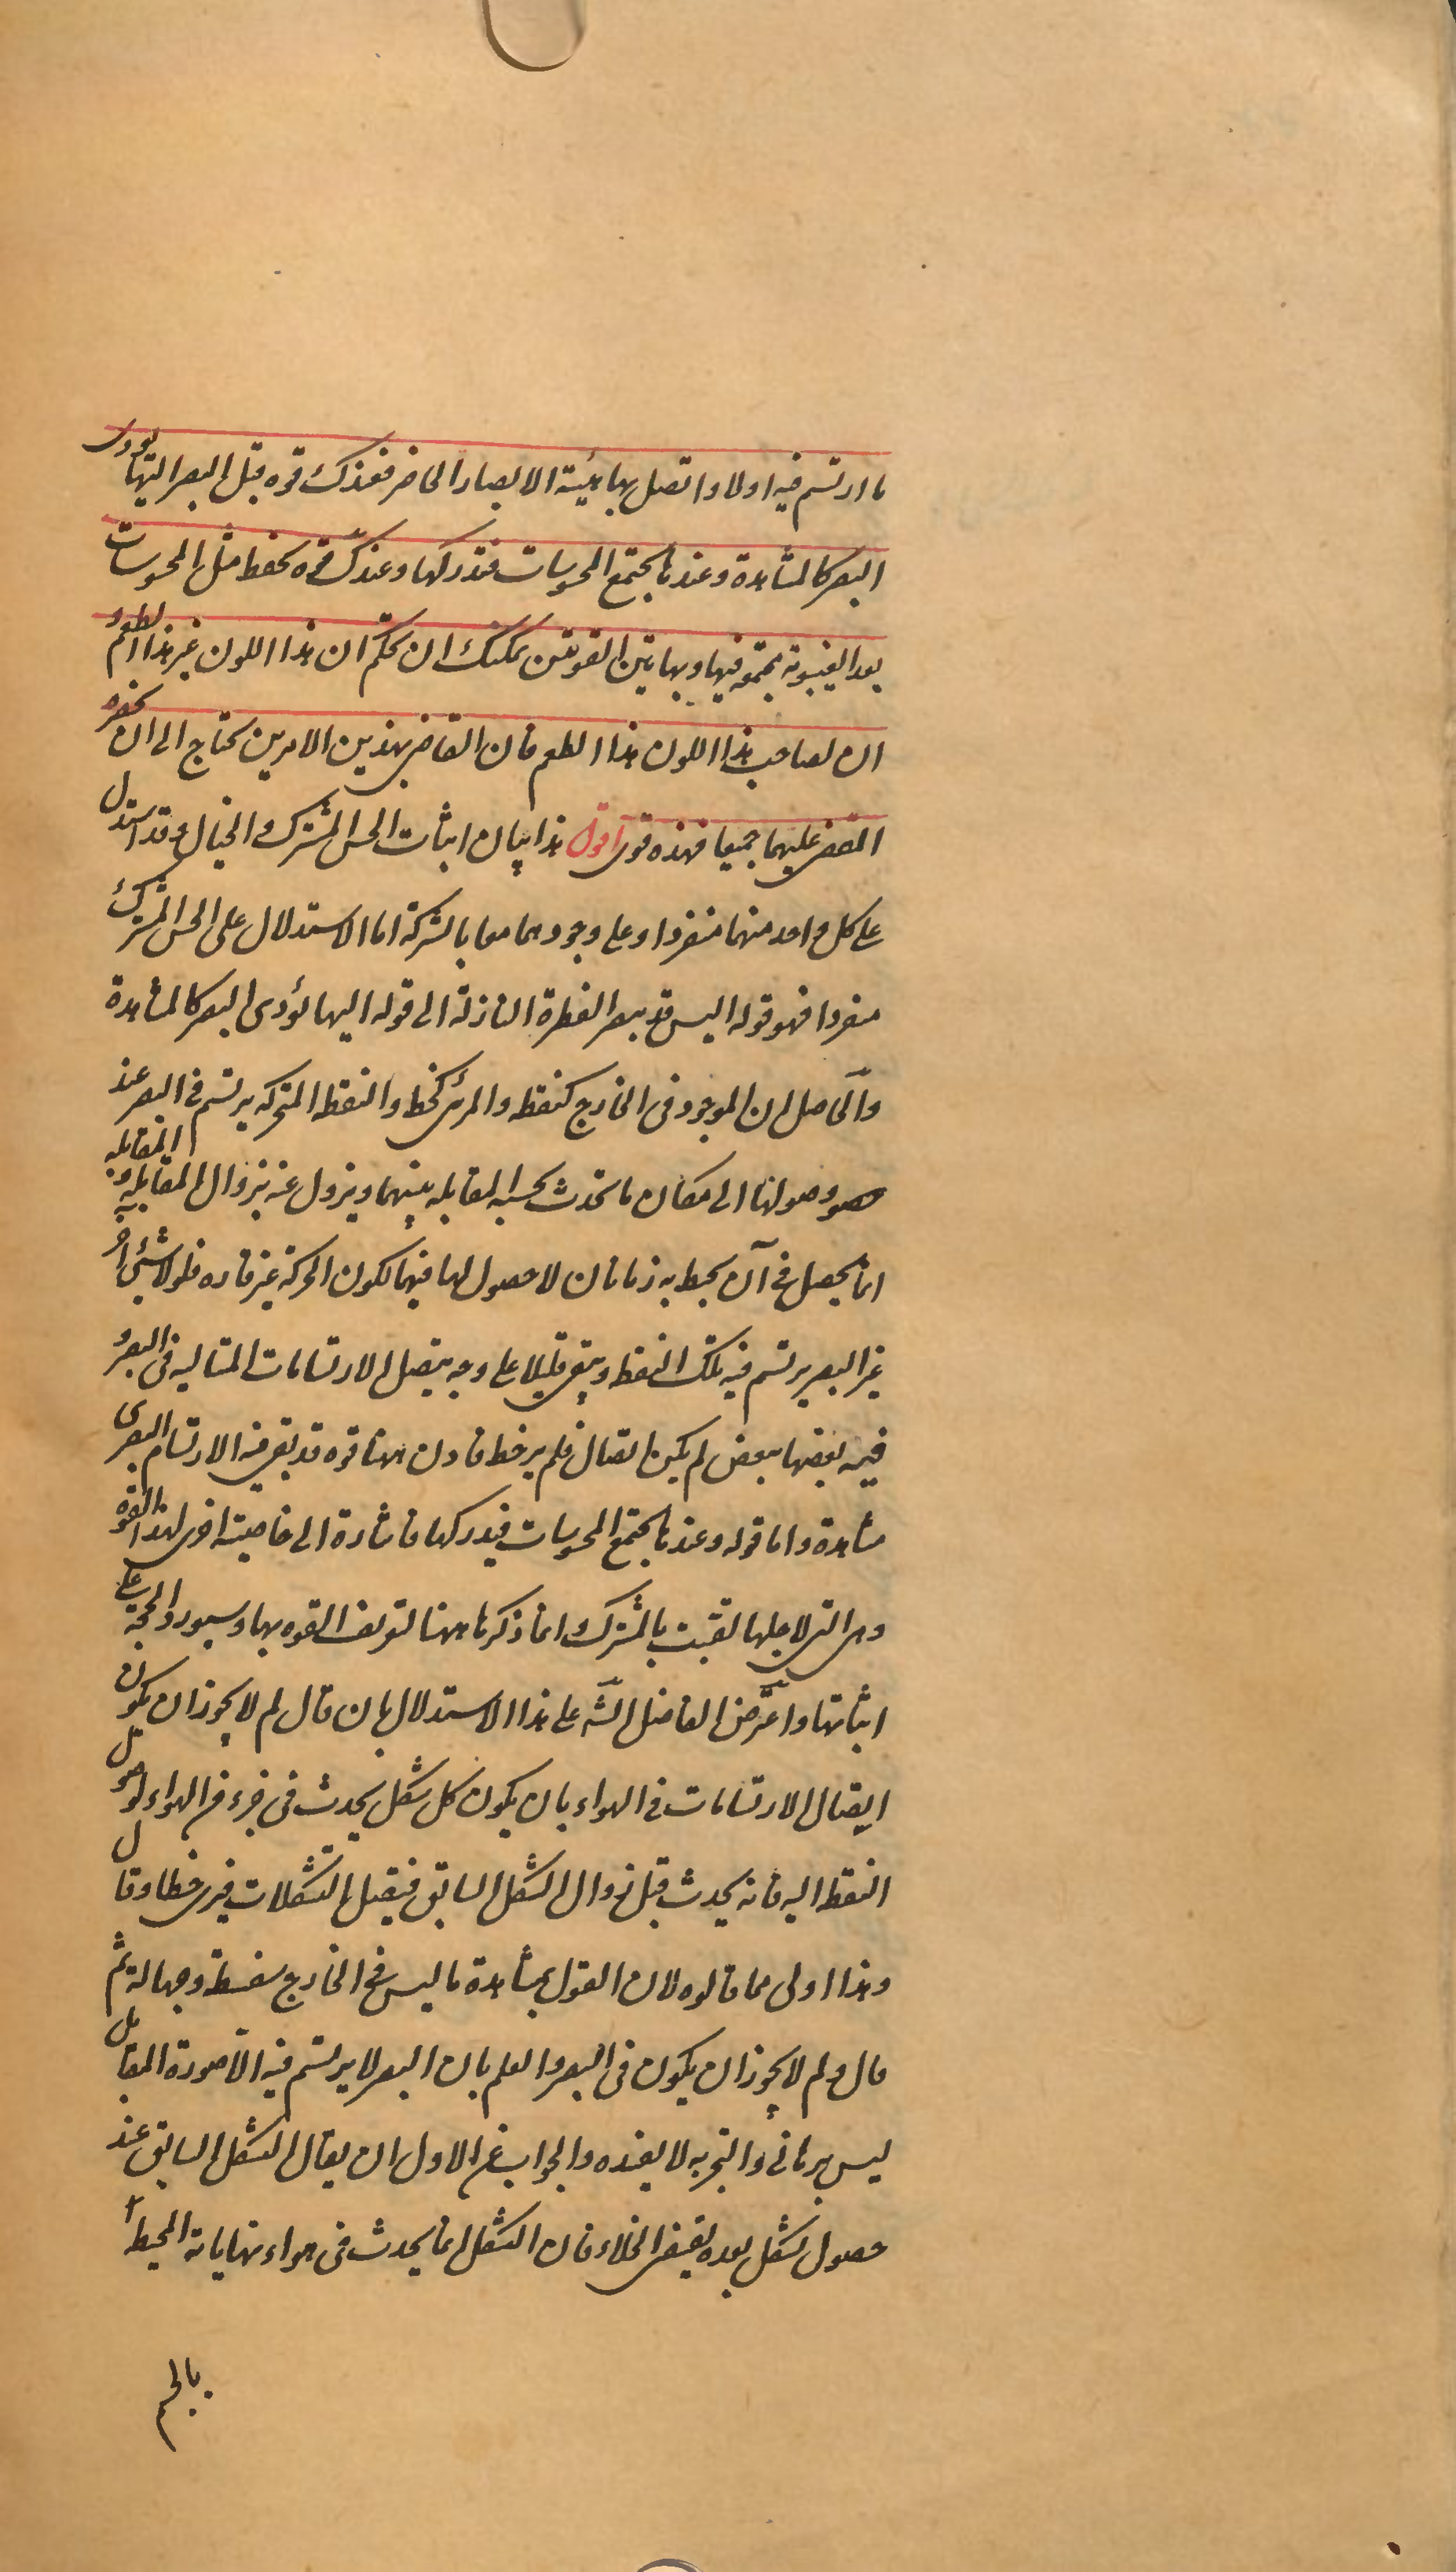 ما ارتسم فيه اولا و اتصل بها هيئة الابصار الحاضر فعندك قوه قبل البصر اليها يؤدى
البصر كالمشاهدة و عندها يجتمع المحسوسات فتدركها و عندك قوه تحفظ مثل المحسوسات
بعد الغيبوبة مجتمعة فيها و بهاتين القوتين يمكنك ان تحكم ان هذا اللون غير هذا الطعم و
ان لصاحب هذا اللون هذا الطعم فان القاضى بهذين الامرين يحتاج الى ان يحضره
المقضى عليهما جميعا فهذه قوى اقول هذا بيان اثبات الحس المشترك و الخيال و قد استدل
على كل واحد منهما منفردا و على وجودهما معا بالشركة اما الاستدلال على الحس المشترك
منفردا فهو قوله اليس قد يبصر القطرة النازلة الى قوله اليها يؤدى البصر كالمشاهدة
و الحاصل ان الموجود فى الخارج كنقطه و المرئى كخط و النقطه المتحركه يرتسم فى البصر عند
وصولها الى مكان ما تحدث بحسبه المقابله بينهما و يزول عنه بزوال المقابله و المقابله
انما يحصل فى آن يحيط به زمانان لا حصول لها فيهما لكون الحركة غير قاره فلولا شئ آخر
غير البصر يرتسم فيه تلك النقطه و يبقى قليلا على وجه يتصل الارتسامات المتتاليه فى البصر و
فيه بعضها ببعض لم يكن اتصال فلم ير خط فاذن ههنا قوه قد بقى فيه الارتسام البصرى
مشاهدة و اما قوله و عندها يجتمع المحسوسات فيدركها فاشارة الى خاصية اخرى لهذه القوه
و هى التى لاجلها لقبت بالمشترك انما ذكرها ههنا لتعريف القوه بها و سيورد الحجة على
اثباتها و اعترض الفاضل الشه على هذا الاستدلال بان قال لم لا يجوز ان يكون
اتصال الارتسامات فى الهواء بان يكون كل شكل يحدث فى جزء من الهواء لوصول
النقطه اليه فانه يحدث قبل زوال الشكل السابق فيتصل التشكلات فيرى خطا و قال
و هذا اولى مما قالوه لان القول بمشاهدة ما ليس فى الخارج سفسطة و جهالة ثم
قال و لم لا يجوز ان يكون فى البصر و العلم بان البصر لا يرتسم فيه الا صورة المقابل
ليس برهانى و التجربه لا يفيده و الجواب عن الاول ان يقال الشكل السابق عند
حصول شكل بعده يقتضى الخلاء فان الشكل انما يحدث فى هواء نهاياته المحيطة
بالجسم